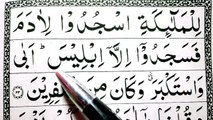 لِلْمَلٰٓئِكَةِ اسْجُدُوْا لِاٰدَمَ
فَسَجَدُوْۤا اِلَّاۤ اِبْلِيْسَ ؕ اَبٰى
وَاسْتَكْبَرَ ۫ وَكَانَ مِنَ الْكٰفِرِيْنَ ﴿۳۴﴾